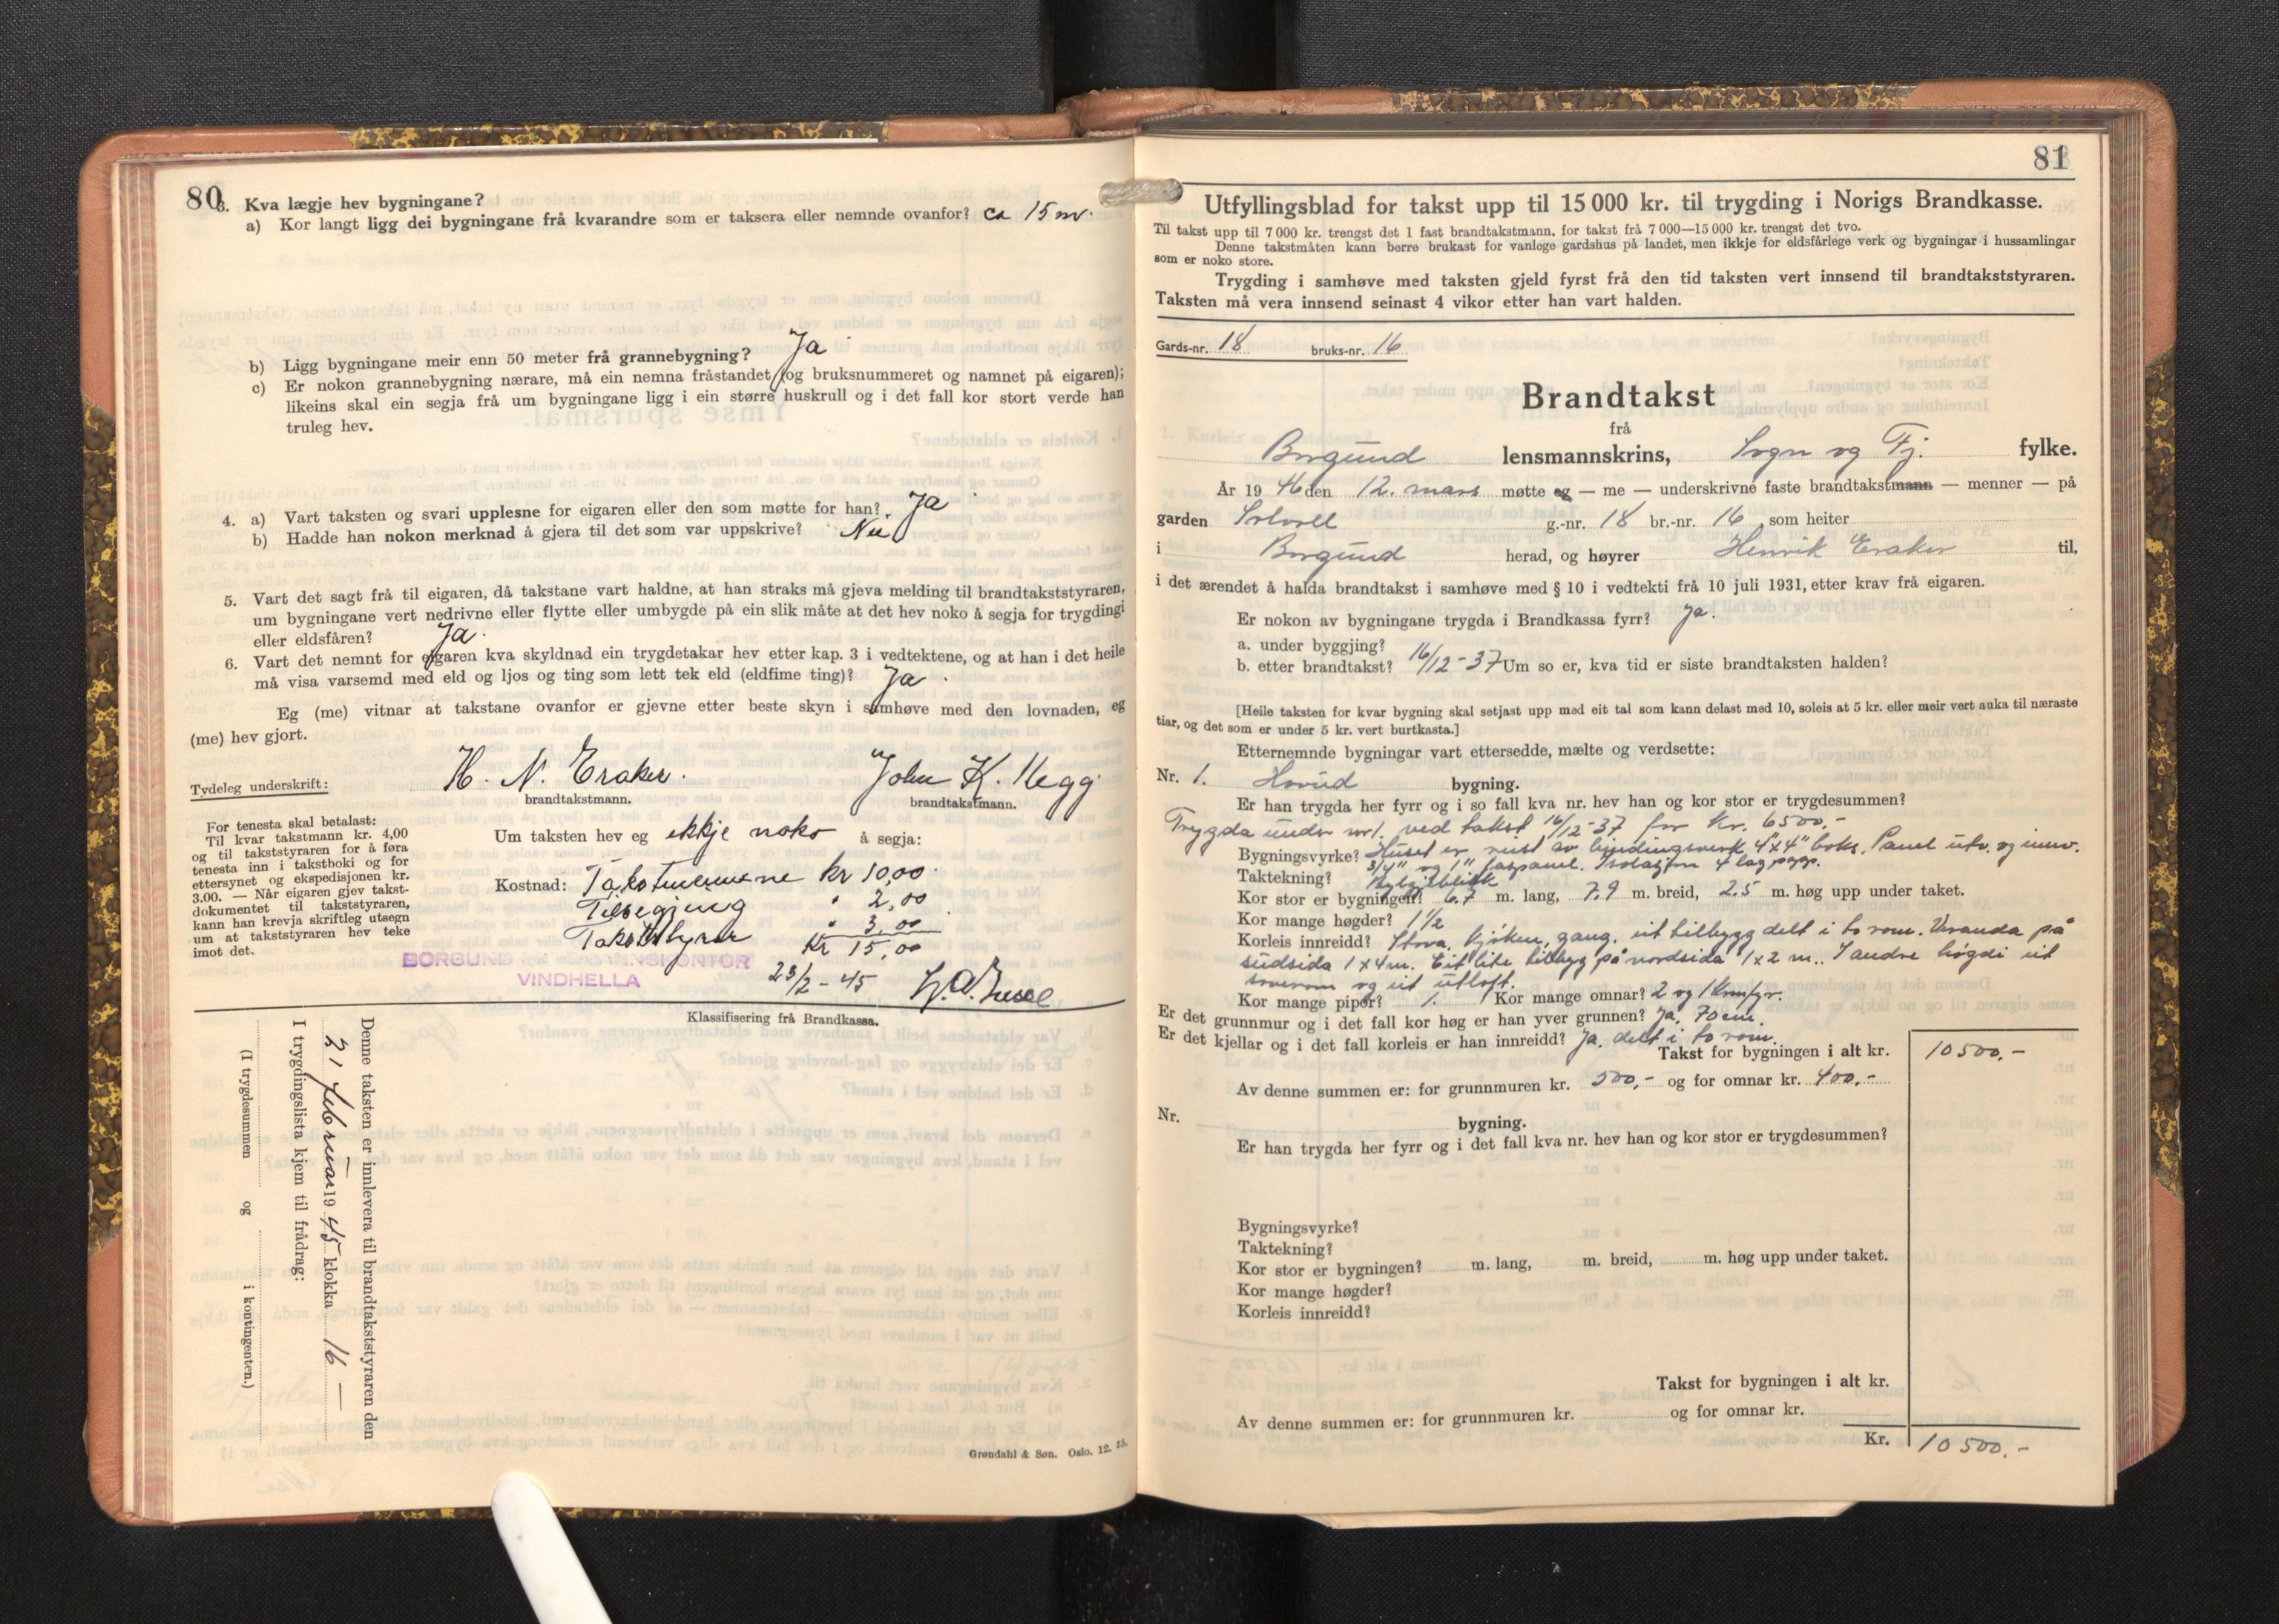 80
3. Kva lægje hev bygningane?
a) Kor langt ligg dei bygningane frå kvarandre som er taksera eller nemnde ovanfor? ca 15 m.
b) Ligg bygningane meir enn 50 meter frå grannebygning? Ja
c) Er nokon grannebygning nærare, må ein nemna fråstandet (og bruksnummeret og namnet på eigaren);
likeins skal ein segja frå um bygningane ligg i ein større huskrull og i det fall kor stort verde han
truleg hev.
4. a) Vart taksten og svari upplesne for eigaren eller den som møtte for han? Ja
b) Hadde han nokon merknad å gjera til det som var uppskrive? Nei
5. Vart det sagt frå til eigaren, då takstane vart haldne, at han straks må gjeva melding til brandtakststyraren,
um bygningane vert nedrivne eller flytte eller umbygde på ein slik måte at det hev noko å segja for trygdingi
eller eldsfåren? Ja.
6. Vart det nemnt for eigaren kva skyldnad ein trygdetakar hev etter kap. 3 i vedtektene, og at han i det heile
må visa varsemd med eld og ljos og ting som lett tek eld (eldfime ting)? Ja.
Eg (me) vitnar at takstane ovanfor er gjevne etter beste skyn i samhøve med den lovnaden, eg
(me) hev gjort.
Tydeleg underskrift: H. N. Eraker. John K. Hegg.
brandtakstmann. brandtakstmann.
For tenesta skal betalast:
Til kvar takstmann kr. 4,00
og til takststyraren for å føra
tenesta inn i takstboki og for
ettersynet og ekspedisjonen kr.
3.00. — Når eigaren gjev takst-
dokumentet til takststyraren,
kann han krevja skriftleg utsegn
um at takststyraren hev teke
imot det.
Um taksten hev eg ikkje noko å segja:
Kostnad: Takstmennene kr 10,00
Tilsegjing " 2,00
Takststyrar " 3,00
Kr 15,00
BORGUND NNSKONTOR
VINDHELLA
23/2 - 45
Klassifisering frå Brandkassa.
Denne taksten er innlevera til brandtakststyraren den
21 februar 1945 klokka 16 —
I trygdingslista kjem til frådrag:
(I trygdesummen og i kontingenten.)
Grøndahl & Søn. Oslo. 12. 35.
81
Utfyllingsblad for takst upp til 15 000 kr. til trygding i Norigs Brandkasse.
Til takst upp til 7 000 kr. trengst det 1 fast brandtakstmann, for takst frå 7 000—15 000 kr. trengst det tvo.
Denne takstmåten kann berre brukast for vanlege gardshus på landet, men ikkje for eldsfårlege verk og bygningar i hussamlingar
som er noko store.
Trygding i samhøve med taksten gjeld fyrst frå den tid taksten vert innsend til brandtakststyraren.
Taksten må vera innsend seinast 4 vikor etter han vart halden.
Gards-nr. 18 bruks-nr. 16
Brandtakst
frå
Borgund lensmannskrins, Sogn og Fj. fylke.
År 1946 den 12. mars møtte eg — me — underskrivne faste brandtakstmann — menner — på
garden g.-nr. 18 br.-nr. 16, som heiter
i Borgund herad, og høyrer Henrik Eraker til,
i det ærendet å halda brandtakst i samhøve med § 10 i vedtekti frå 10 juli 1931, etter krav frå eigaren.
Er nokon av bygningane trygda i Brandkassa fyrr? Ja.
a. under byggjing?
b. etter brandtakst? 16/12-37 Um so er, kva tid er siste brandtaksten halden?
[Heile taksten for kvar bygning skal setjast upp med eit tal som kann delast med 10, soleis at 5 kr. eller meir vert auka til næraste
tiar, og det som er under 5 kr. vert burtkasta.]
Etternemnde bygningar vart ettersedde, mælte og verdsette:
Nr. 1. Hovud bygning.
Er han trygda her fyrr og i so fall kva nr. hev han og kor stor er trygdesummen?
Trygda under nr 1. ved takst 16/12-37 for kr. 6500,-
Bygningsvyrke? Huset er reist av bindingsverk 4"x4" boks. Panel utv. og innv.
3/4" og 1" faspanel. Isolasjon 4 lag papp.
Taktekning?
Kor stor er bygningen? 6.7 m. lang, 7.9 m. breid, 2.5 m. høg upp under taket.
Kor mange høgder? 1 1/2
Korleis innreidd? Stova, kjøken, gang, eit tilbygg delt i to rom. Veranda på
sudsida 1 x 4 m. Eit lite tilbygg på nordsida 1 x 2 m. I andre høgdi eit
soverom og eit utloft.
Kor mange pipor? 1. Kor mange omnar? 2 og 1 komfyr.
Er det grunnmur og i det fall kor høg er han yver grunnen? Ja, 70 cm.
Er det kjellar og i det fall korleis er han innreidd? Ja, delt i to rom.
Takst for bygningen i alt kr. 10 500.-
Av denne summen er: for grunnmuren kr. 500,- og for omnar kr. 400.-
Nr. bygning.
Er han trygda her fyrr og i det fall kva nr. hev han og kor stor er trygdesummen?
Bygningsvyrke?
Taktekning?
Kor stor er bygningen? m. lang, m. breid, m. høg upp under taket.
Kor mange høgder?
Korleis innreidd?
Takst for bygningen i alt kr.
Av denne summen er: for grunnmuren kr. og for omnar kr.
Kr. 10 500.-